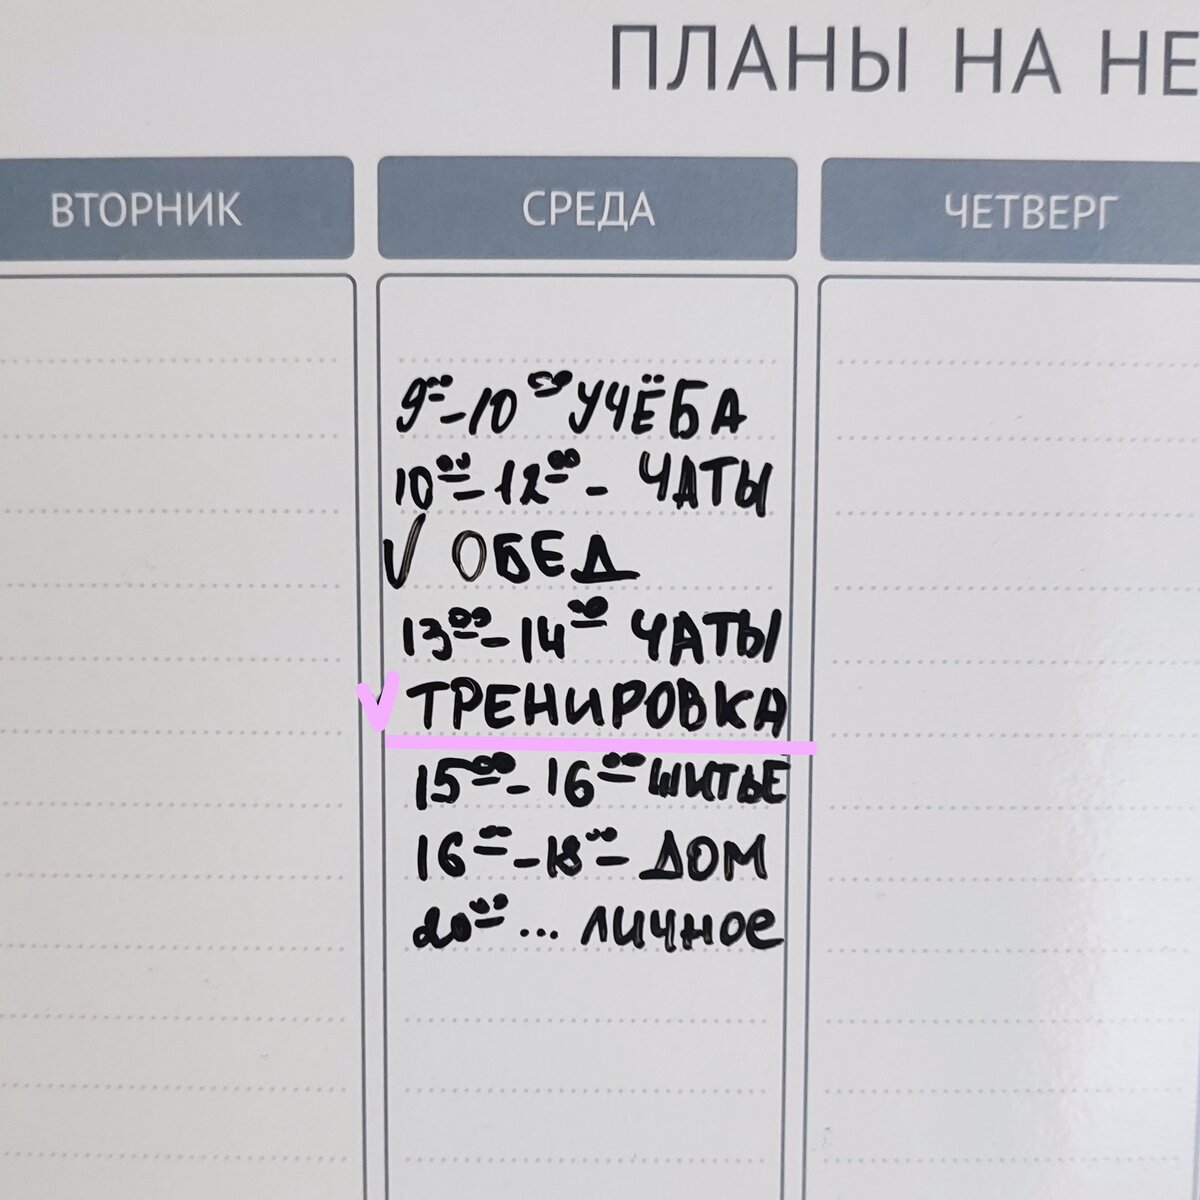 ПЛАНЫ НА НЕ
ВТОРНИК
СРЕДА
ЧЕТВЕРГ
9⁰⁰-10⁰⁰ УЧЁБА
10⁰⁰-12⁰⁰ - ЧАТЫ
✓ ОБЕД
13⁰⁰-14⁰⁰ ЧАТЫ
✓ ТРЕНИРОВКА
15⁰⁰-16⁰⁰ ШИТЬЕ
16⁰⁰-18⁰⁰- ДОМ
20⁰⁰... ЛИЧНОЕ